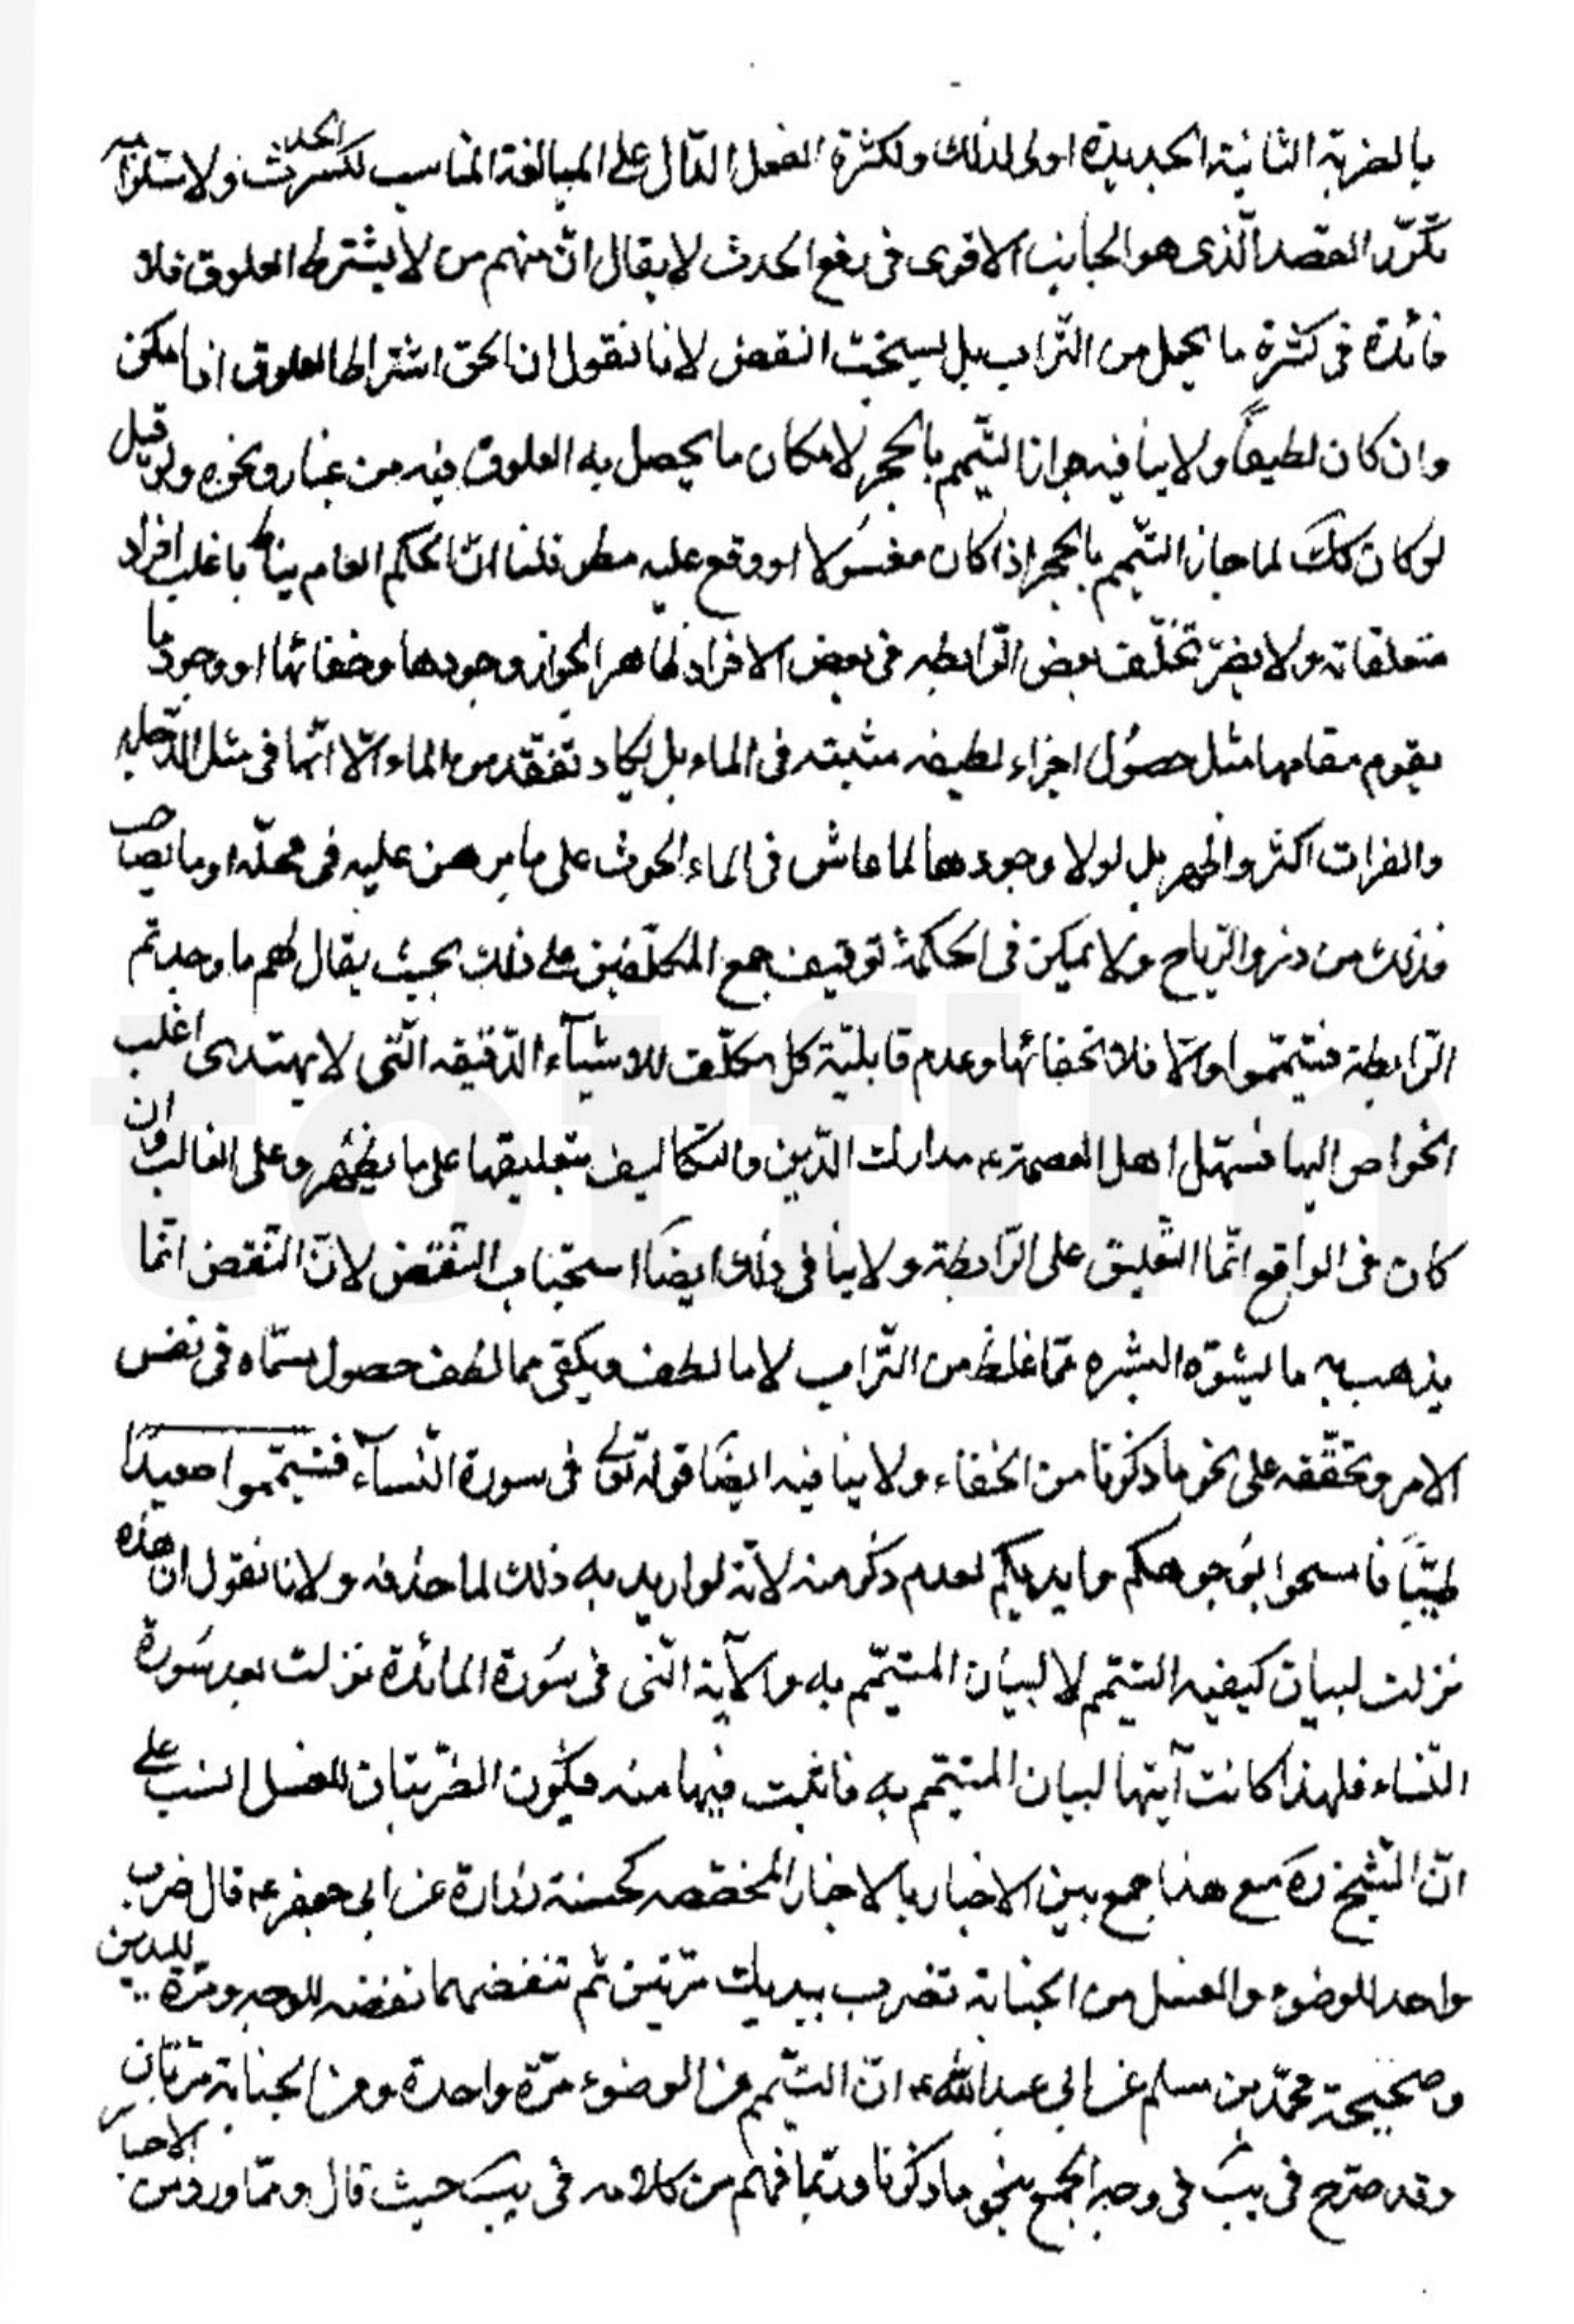 بالضربة الثانية الجديدة اولى لذلك ولكثرة الفعل الدّال على المبالغة المناسب لكسر الحدث ولاستلزامه
تكرّر القصد الّذى هو الجانب الاقوى فى رفع الحدث لا يقال انّ منهم من لا يشترط العلوق فلا
فائدة فى كثرة ما يحمل من التّراب بل يستحبّ النفض لانا نقول ان الحق اشتراط العلوق اذا امكن
وان كان لطيفاً ولا ينافيه جواز التيّمم بالحجر لامكان ما يحصل به العلوق فيه من غبار ونحوه ولو قيل
لو كان كك لما جاز التيّمم بالحجر اذا كان مغسُولا او وقع عليه مطر قلنا انّ الحكم العام يناط باغلب افراد
متعلقاته ولا يضرّ تخلّف بعض الرّابطه فى بعض الافراد ظاهرا لجواز وجودها وخفائها او وجود ما
يقوم مقامها مثل حصُول اجزاء لطيفه منبثه فى الماء بل لا يكاد تفقد من الماء الّا انّها فى مثل الدّجله
والفرات اكثر واظهر بل لولا وجودها لما عاش فى الماء الحوت على ما برهن عليه فى محلّه او ما يصاحب
فذلك من ذرو الرّياح ولا يمكن فى الحكمة توقيف جميع المكلّفين على ذلك بحيث يقال لهم ما وجدتم
الرّابطة فتيمّموا والّا فلا لخفائها وعدم قابليّة كل مكلّف للاشيآء الدّقيقه الّتى لا يهتدى اغلب
الخواص اليها فسهّل اهل العصمة ع مدارك الدّين والتكاليف بتعليقها على ما يظهر وعلى الغالب وان
كان فى الواقع انّما التّعليق على الرّابطة ولا ينافى ذلك ايضًا استحباب النّفض لانّ النّفض انّما
يذهب به ما يشوّه البشره ممّا غلظ من التّراب لا ما لطف ويكفى مما لطف حصول مسمّاه فى نفس
الامر وتحقّقه على نحو ما ذكرنا من الخفاء ولا ينافيه ايضًا قوله تعالى فى سورة النّسآء فتيمّموا صعيدًا
طيّبًا فامسحوا بوُجوهكم وايديكم لعدم ذكر منه لانّه لو اريد به ذلك لما حذفه ولانا نقول ان هذه
نزلت لبيان كيفيه التيمّم لا لبيان المتيمّم به والآية الّتى فى سُورة المائدة نزلت بعد سُورة
النّساء فلهذا كانت آيتها لبيان المتيمّم به فاثبت فيها منه فيكُون الضّربتان للغسل انسب على
انّ الشّيخ ره مع هذا جمع بين الاخبار بالاخبار المخصّصه كحسنة زرارة عن ابى جعفر ع قال ضرب
واحد للوضوء والغسل من الجنابة تضرب بيديك مرّتين ثم تنفضهما نفضه للوجه ومرّة لليدين
وصحيحة محمّد بن مسلم عن ابى عبدالله ع انّ التيّمم من الوضوء مرّة واحدة ومن الجنابة مرّتان
وقد صرّح فى يب فى وجه الجمع بنحو ما ذكرنا وربّما فهم من كلامه فى يب حيث قال وممّا ورد من الاخبار